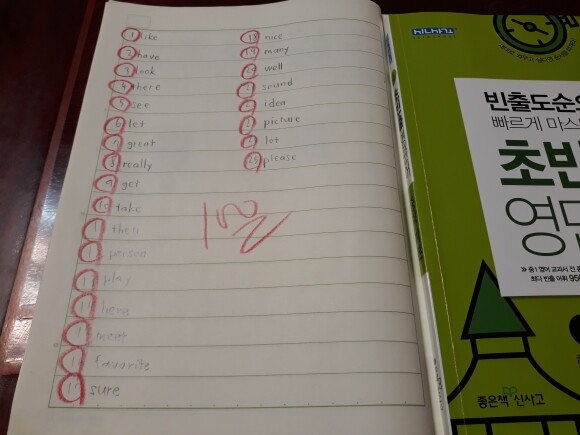 1 like
2 have
3 look
4 here
5 see
6 let
7 great
8 really
9 get
10 take
11 then
12 person
13 play
14 here
15 meet
16 favorite
17 sure
18 nice
19 many
20 well
21 sound
22 idea
23 picture
24 lot
25 please
빈출도순
빠르게 마스
초반
영단
» 중1 영어 교과서 전
최다 빈출 어휘 950
좋은책 신사고